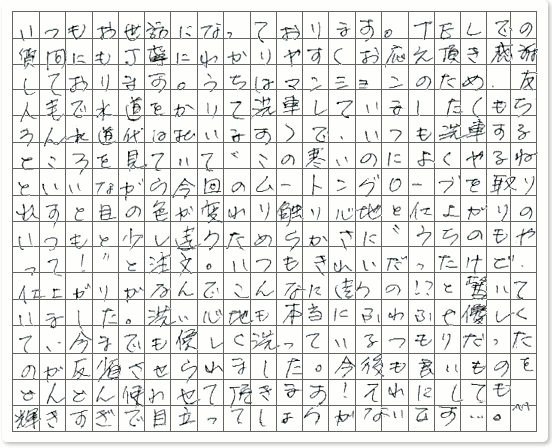 いつもお世話になっております。TELでの
質問にも丁寧にわかりやすくお応え頂き感謝
しております。うちはマンションのため、友
人宅で水道をかりて洗車していました(もち
ろん水道代は払います)で、いつも洗車する
ところを見ていて〝この寒いのによくやるね
といいながら今回のムートングローブを取り
出すと目の色が変わり触り心地と仕上がりの
いつもと少し違うためらかさに〝うちのもや
って!〟と注文。いつもきれいだったけど、
仕上がりがなんでこんなに違うの!?と驚いて
いました。洗い心地も本当にふわふや優しく
て、今までも優しく洗っているつもりだった
のが反省させられました。今後も良いものを
どんどん使わせて頂きます!それにしても
輝きすぎで目立ってしょうがないです…。^^